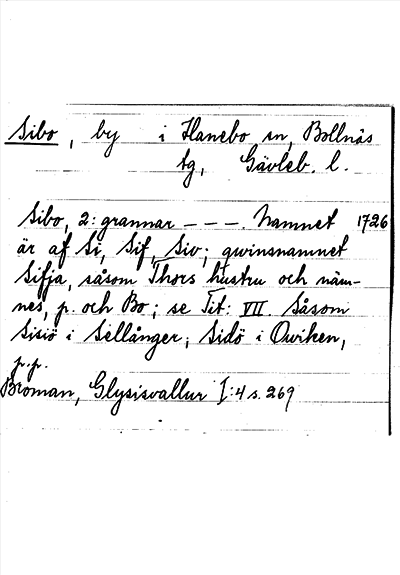 Sibo, by i Hanebo sn, Bollnäs
tg, Gävleb. l.
Sibo, 2: grannar - - -. Namnet 1726
är af Si, Sif, Siv; qwinsnamnet
Sifja, såsom Thors hustru och näm-
nes, p. och Bo; se Tit: VII. Såsom
Sisiö i Sellånger; Sidö i Qwiken,
p.p.
Broman, Glysisvallur I:4 s. 269